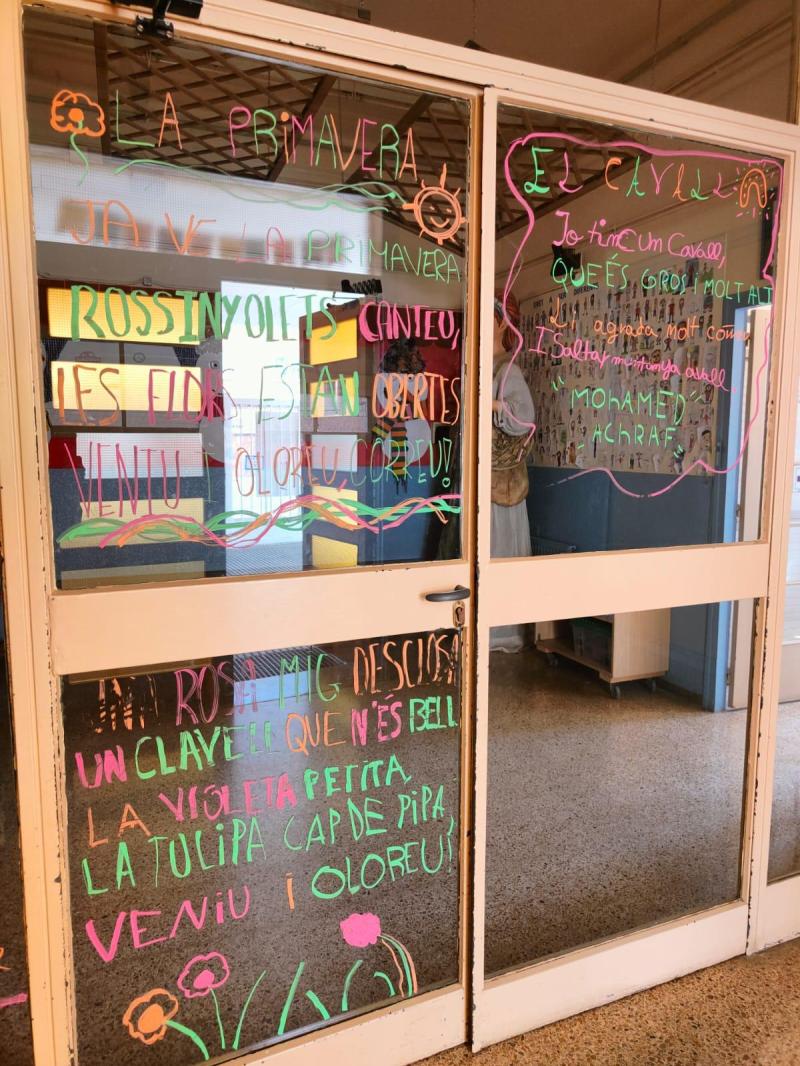 LA PRIMAVERA
JA VE LA PRIMAVERA
ROSSINYOLETS CANTEU,
LES FLORS ESTAN OBERTES
VENIU I OLOREU, CORREU!
UNA ROSA MIG DESCLOSA
UN CLAVELL QUE N'ÉS BELL
LA VIOLETA PETITA,
LA TULIPA CAP DE PIPA,
VENIU i OLOREU!
EL CAVALL
Jo tinc un Cavall,
QUE ÉS GROS i MOLT ALT
Li agrada molt córrer
I Saltar muntanya avall.
"MOHAMED"
"ACHRAF"